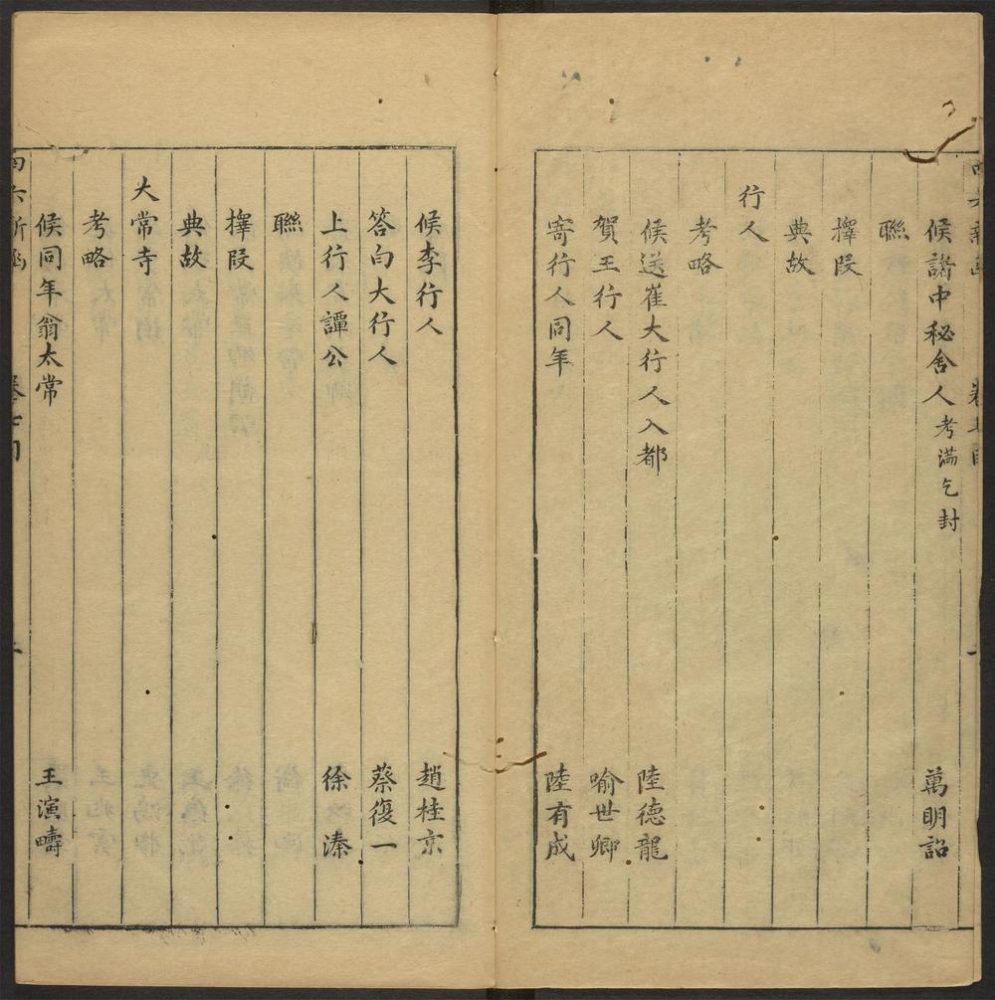 候諸中秘舍人考滿乞封 萬明詔
聯
擇段
典故
行人
考略
候送崔大行人入都 陸德龍
賀王行人 喻世卿
寄行人同年 陸有成
候李行人 趙桂京
答白大行人 蔡復一
上行人譚公 徐溱
聯
擇段
典故
大常寺
考略
候同年翁太常 王演疇